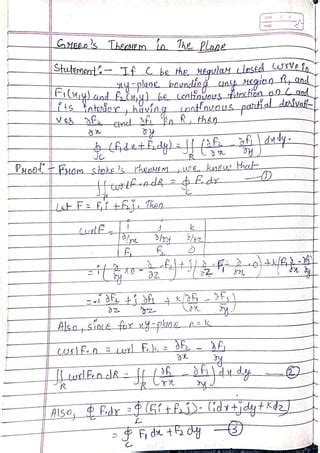 Green's Theorem in The Plane
Statement :- If C be the regular closed curve in
xy-plane bounding any region R, and
F₁(x,y) and F₂(x,y) be continuous function on C and
its interior, having continuous partial derivati-
ves ∂F₂/∂x and ∂F₁/∂y in R, then
∮_C (F₁dx + F₂dy) = ∬_R (∂F₂/∂x - ∂F₁/∂y) dx dy.
Proof :- From stoke's theorem, we know that
∬ curl F.n dR = ∮_C F.dr ①
Let F = F₁i + F₂j. Then
curl F = | i j k |
| ∂/∂x ∂/∂y ∂/∂z |
| F₁ F₂ 0 |
= i(∂/∂y ×0 - ∂/∂z F₂) + j(∂/∂z F₁ - ∂/∂x .0) + k(F₂ ∂/∂x - F₁ ∂/∂y)
= -i ∂F₂/∂z + j ∂F₁/∂z + k(∂F₂/∂x - ∂F₁/∂y)
Also, since for xy-plane n = k
curl F.n = curl F.k = ∂F₂/∂x - ∂F₁/∂y
∬_R curl F.n dR = ∬_R (∂F₂/∂x - ∂F₁/∂y) dx dy ②
Also, ∮_C F.dr = ∮_C (F₁i + F₂j).(idx + jdy + kdz)
= ∮_C F₁dx + F₂dy ③